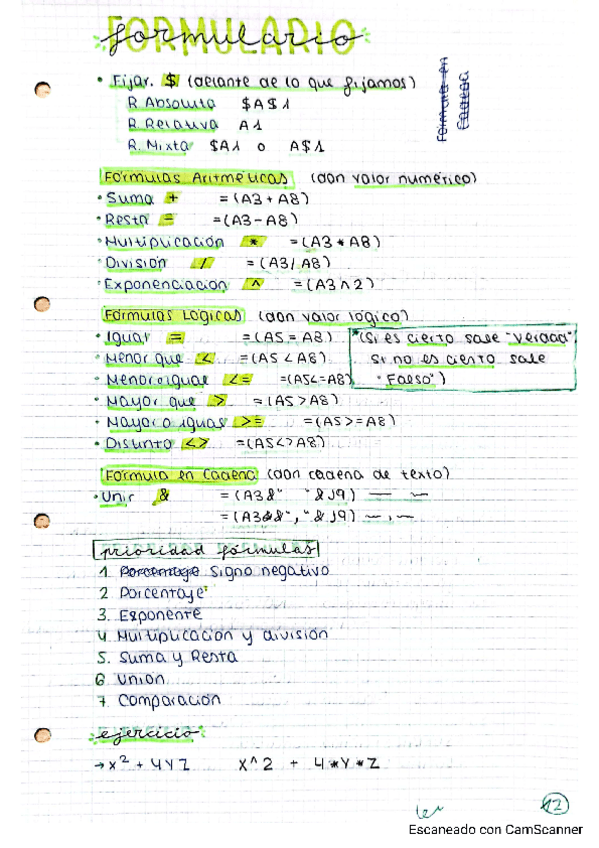 FORMULARIO
formulario
• Fijar. $ (delante de lo que fijamos)
R. Absoluta $A$1
R. Relativa A1
R. Mixta $A1 o A$1
Fórmula en
Cadena
Fórmulas Aritméticas (dan valor numérico)
• Suma + =(A3+A8)
• Resta = =(A3-A8)
• Multiplicación * =(A3*A8)
• División / =(A3/A8)
• Exponenciación ^ =(A3^2)
Fórmulas Lógicas (dan valor lógico)
• Igual = =(A5=A8)
• Menor que < =(A5<A8)
• Menor o igual <= =(A5<=A8)
• Mayor que > =(A5>A8)
• Mayor o igual >= =(A5>=A8)
• Distinto <> =(A5<>A8)
*(Si es cierto sale "Verdad"
Si no es cierto sale
"Falso")
Fórmula en Cadena (dan cadena de texto)
• Unir & =(A3&" "&J9) — —
=(A3&&","&J9) —,—
prioridad fórmulas
1. Porcentaje Signo negativo
2 Porcentaje
3. Exponente
4. Multiplicación y división
5. Suma y Resta
6 Unión
7. Comparación
ejercicio
→ x² + 4YZ X^2 + 4*Y*Z
12
Escaneado con CamScanner